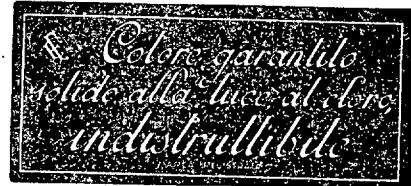 Colore garantito
solido alla luce al cloro
indistruttibile